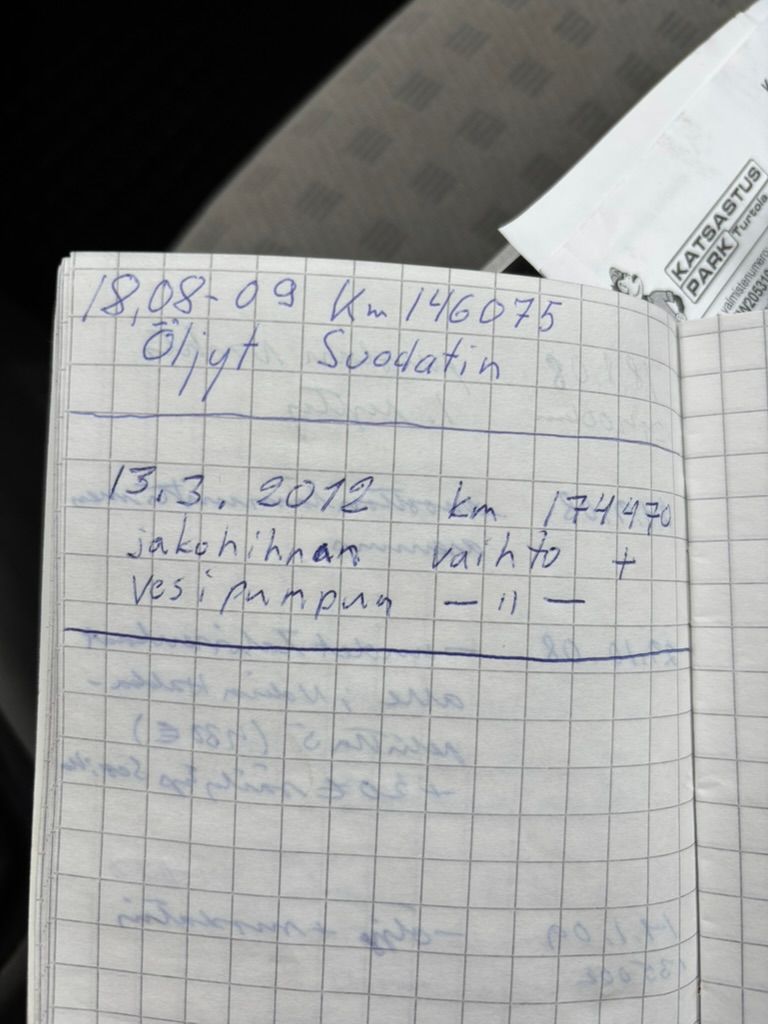 18,08-09 Km 146075
Öljyt Suodatin
13.3. 2012 km 174470
jakohihnan vaihto +
vesipumpun — 〃 —
KATSASTUS
PARK Turtola